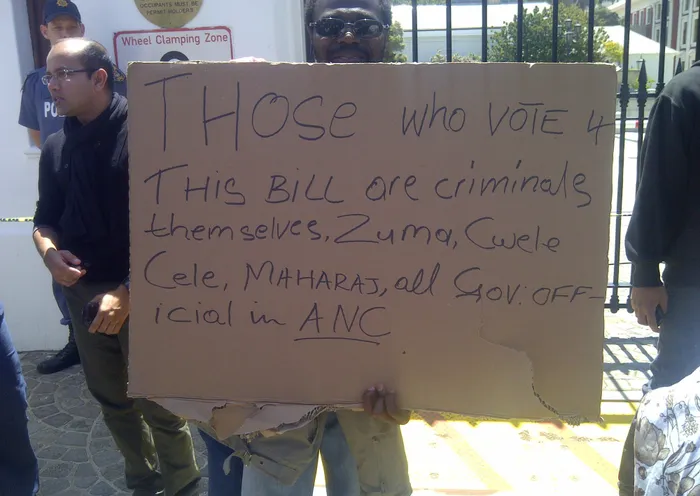 OCCUPANTS MUST BE
Wheel Clamping Zone
PO
THOSE WHO VOTE 4
THIS BILL are criminals
themselves, Zuma, Cwele
Cele, MAHARAJ, all GOV. OFF-
icial in ANC